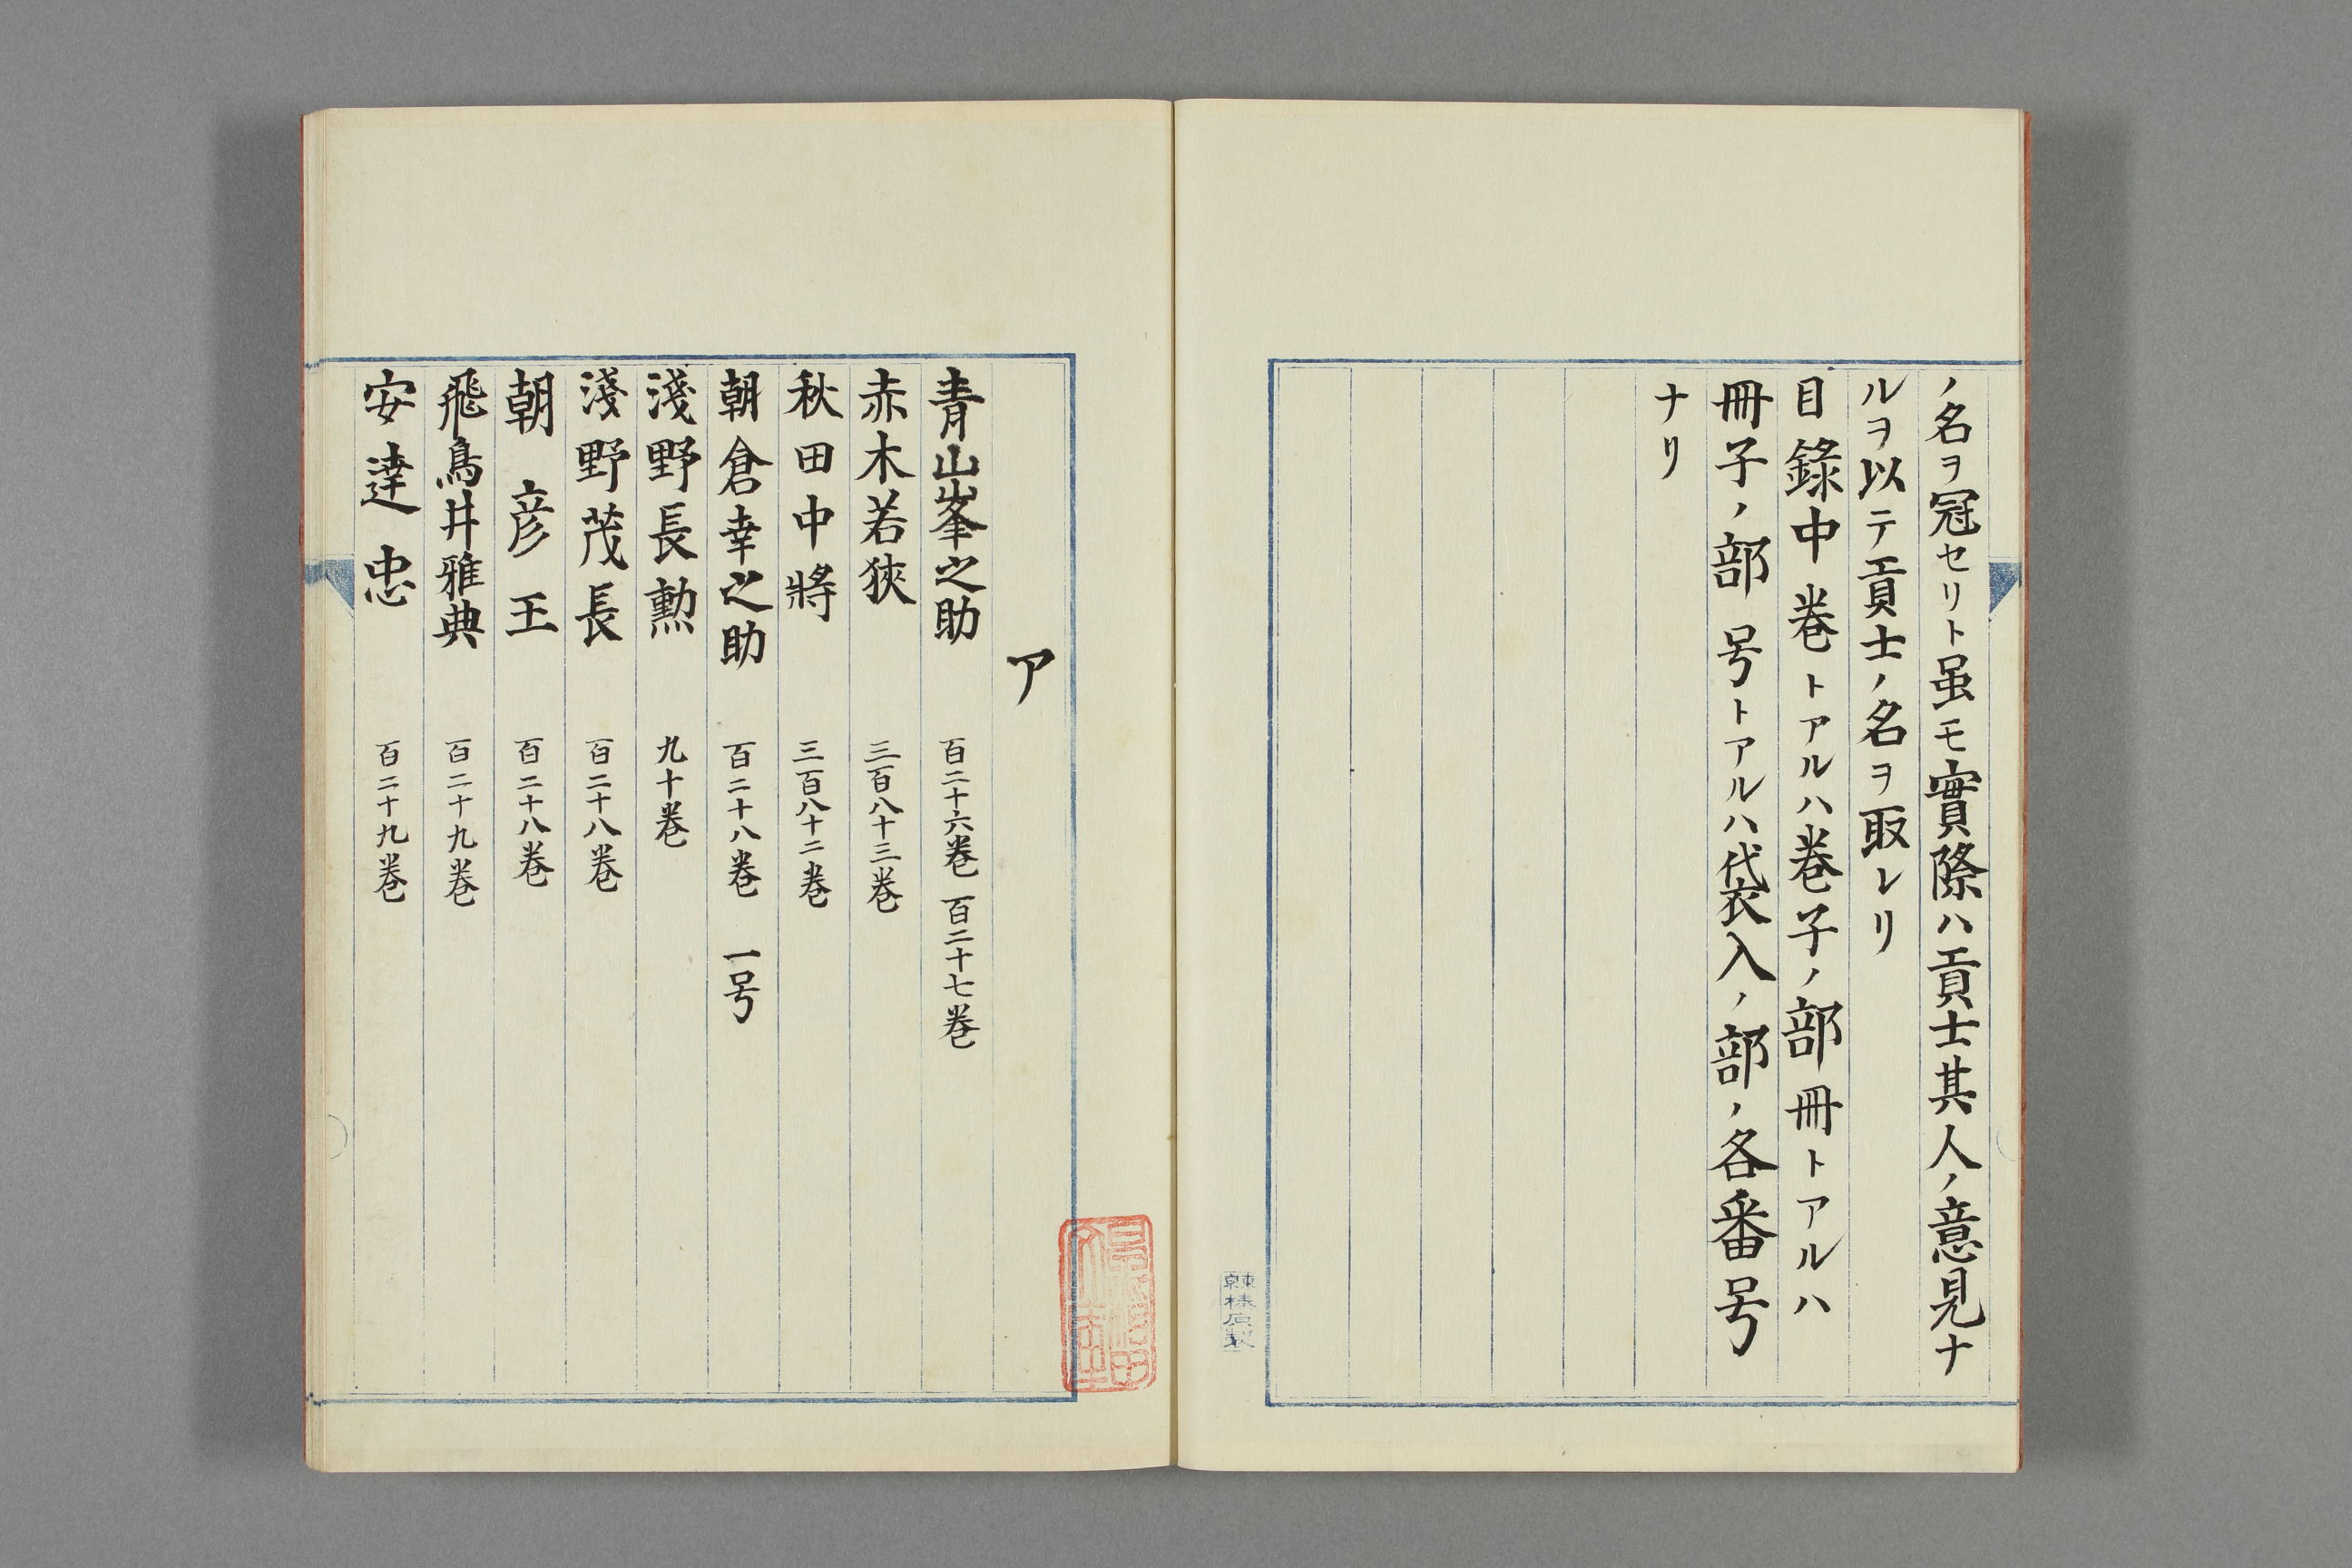 ノ名ヲ冠セリト虽モ實際ハ貢士其人ノ意見ナ
ルヲ以テ貢士ノ名ヲ取レリ
目錄中巻トアルハ巻子ノ部冊トアルハ
冊子ノ部号トアルハ袋入ノ部ノ各番号
ナリ
榛原製
ア
青山峯之助 百二十六巻 百二十七巻
赤木若狹 三百八十三巻
秋田中將 三百八十二巻
朝倉幸之助 百二十八巻 一号
淺野長勲 九十巻
淺野茂長 百二十八巻
朝彦王 百二十八巻
飛鳥井雅典 百二十九巻
安達忠 百二十九巻